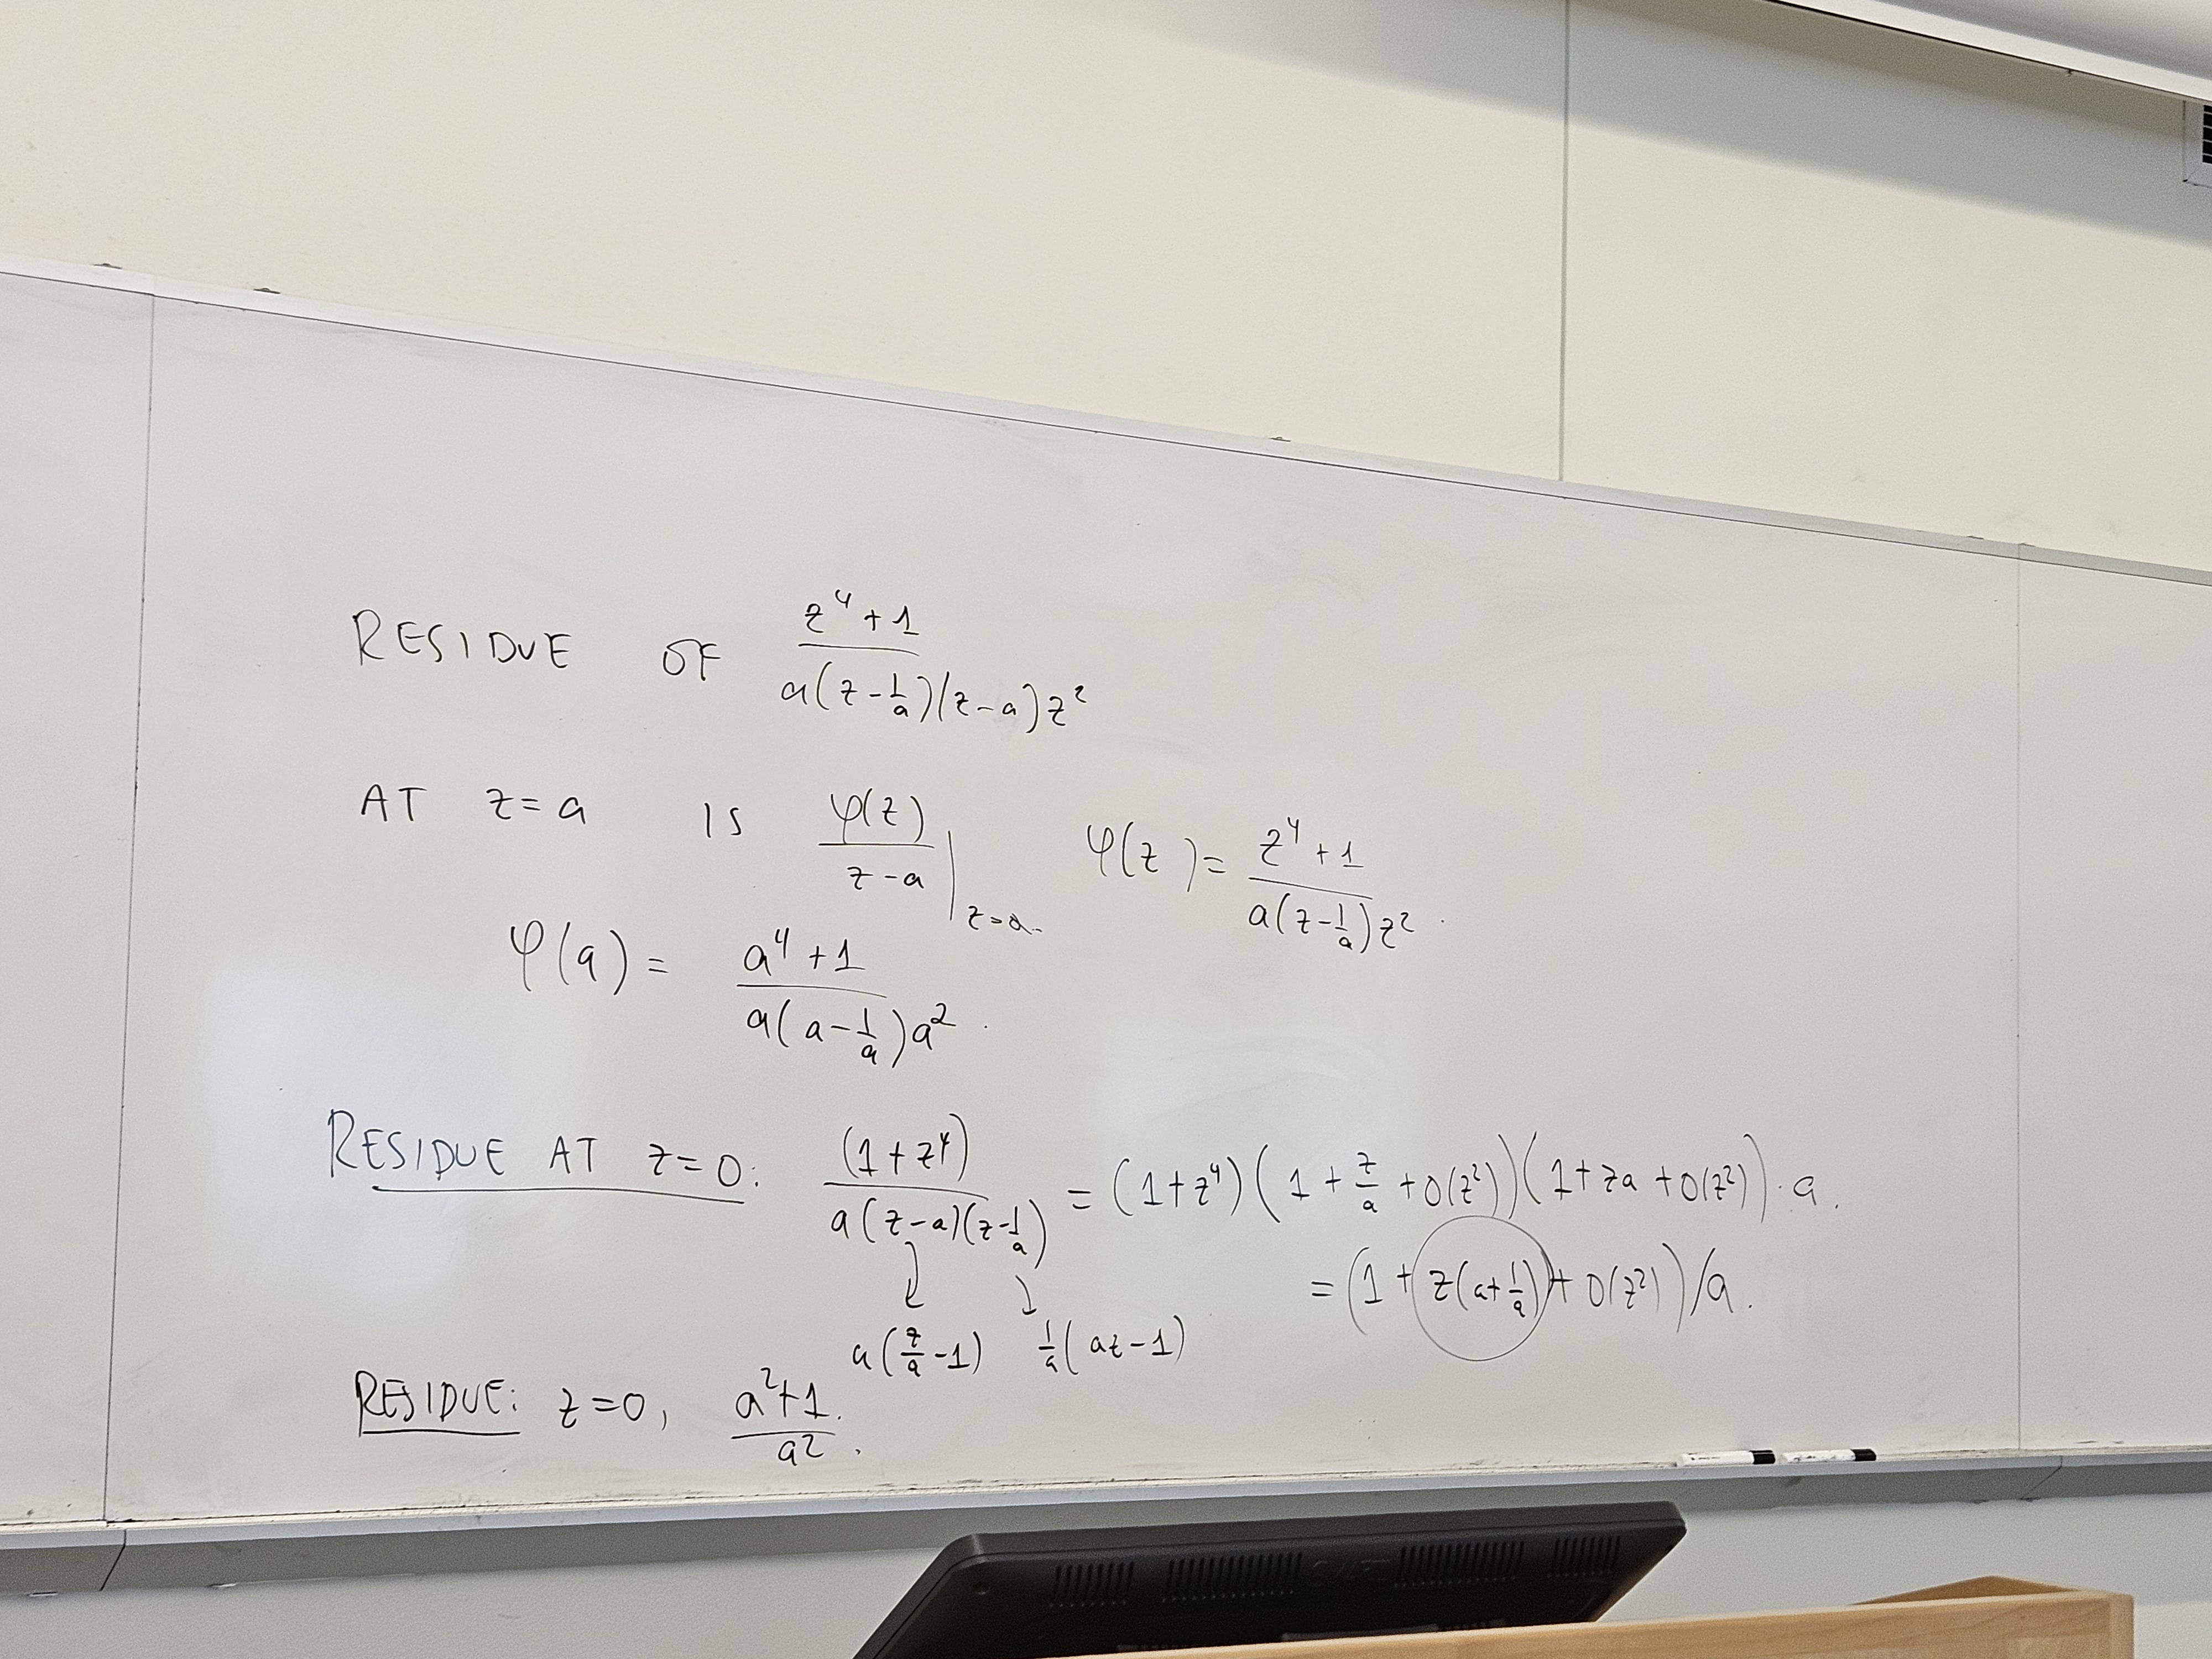 RESIDUE OF \frac{z^4+1}{a(z-\frac{1}{a})(z-a)z^2}
AT z=a IS \frac{φ(z)}{z-a}|_{z=a.} φ(z)=\frac{z^4+1}{a(z-\frac{1}{a})z^2}.
φ(a)=\frac{a^4+1}{a(a-\frac{1}{a})a^2}.
RESIDUE AT z=0: \frac{(1+z^4)}{a(z-a)(z-\frac{1}{a})} = (1+z^4)(1+\frac{z}{a}+O(z^2))(1+za+O(z^2))·a.
= (1+z(a+\frac{1}{a})+O(z^2))/a.
a(\frac{z}{a}-1) \frac{1}{a}(az-1)
RESIDUE: z=0, \frac{a^2+1.}{a^2}.